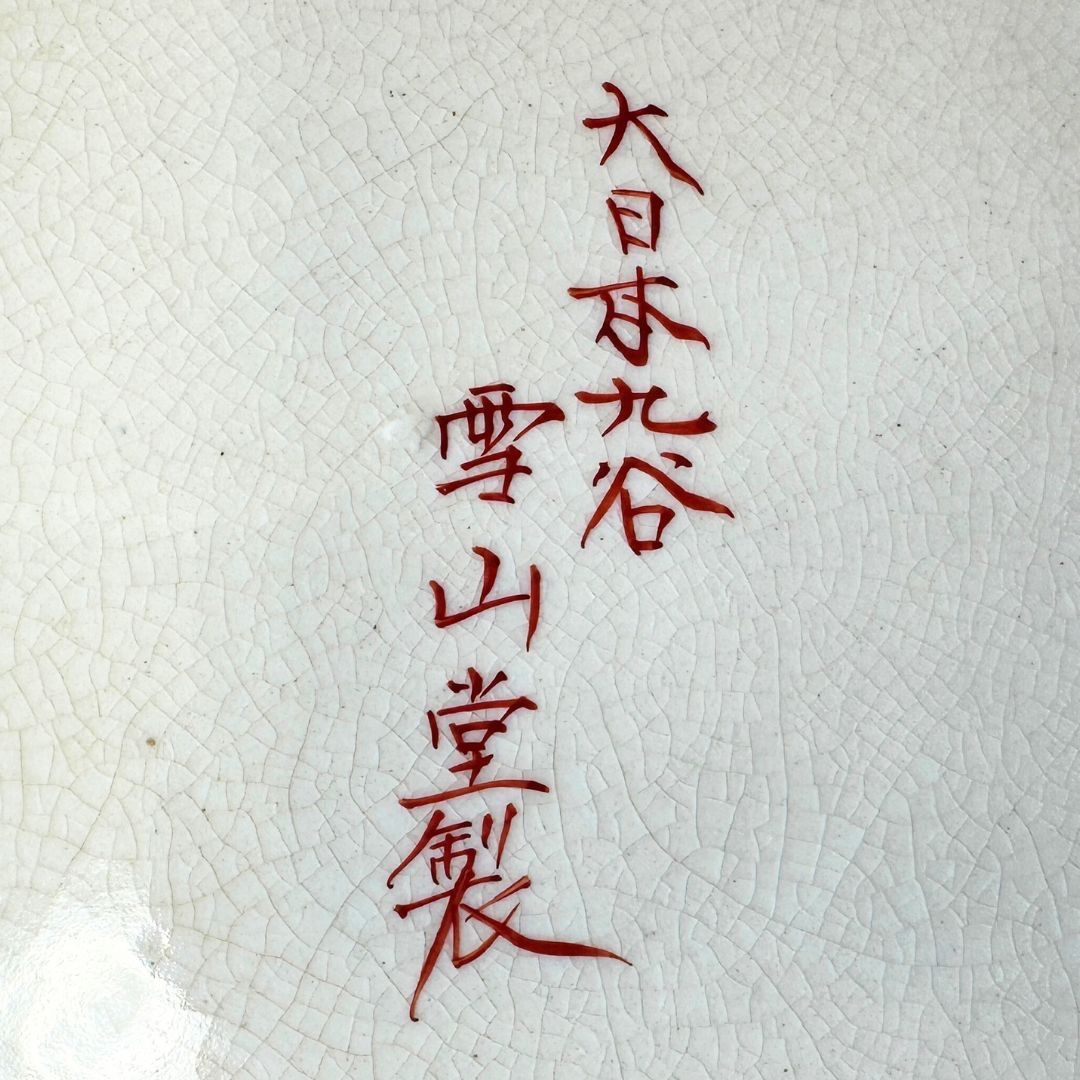 大日本九谷
雪山堂製